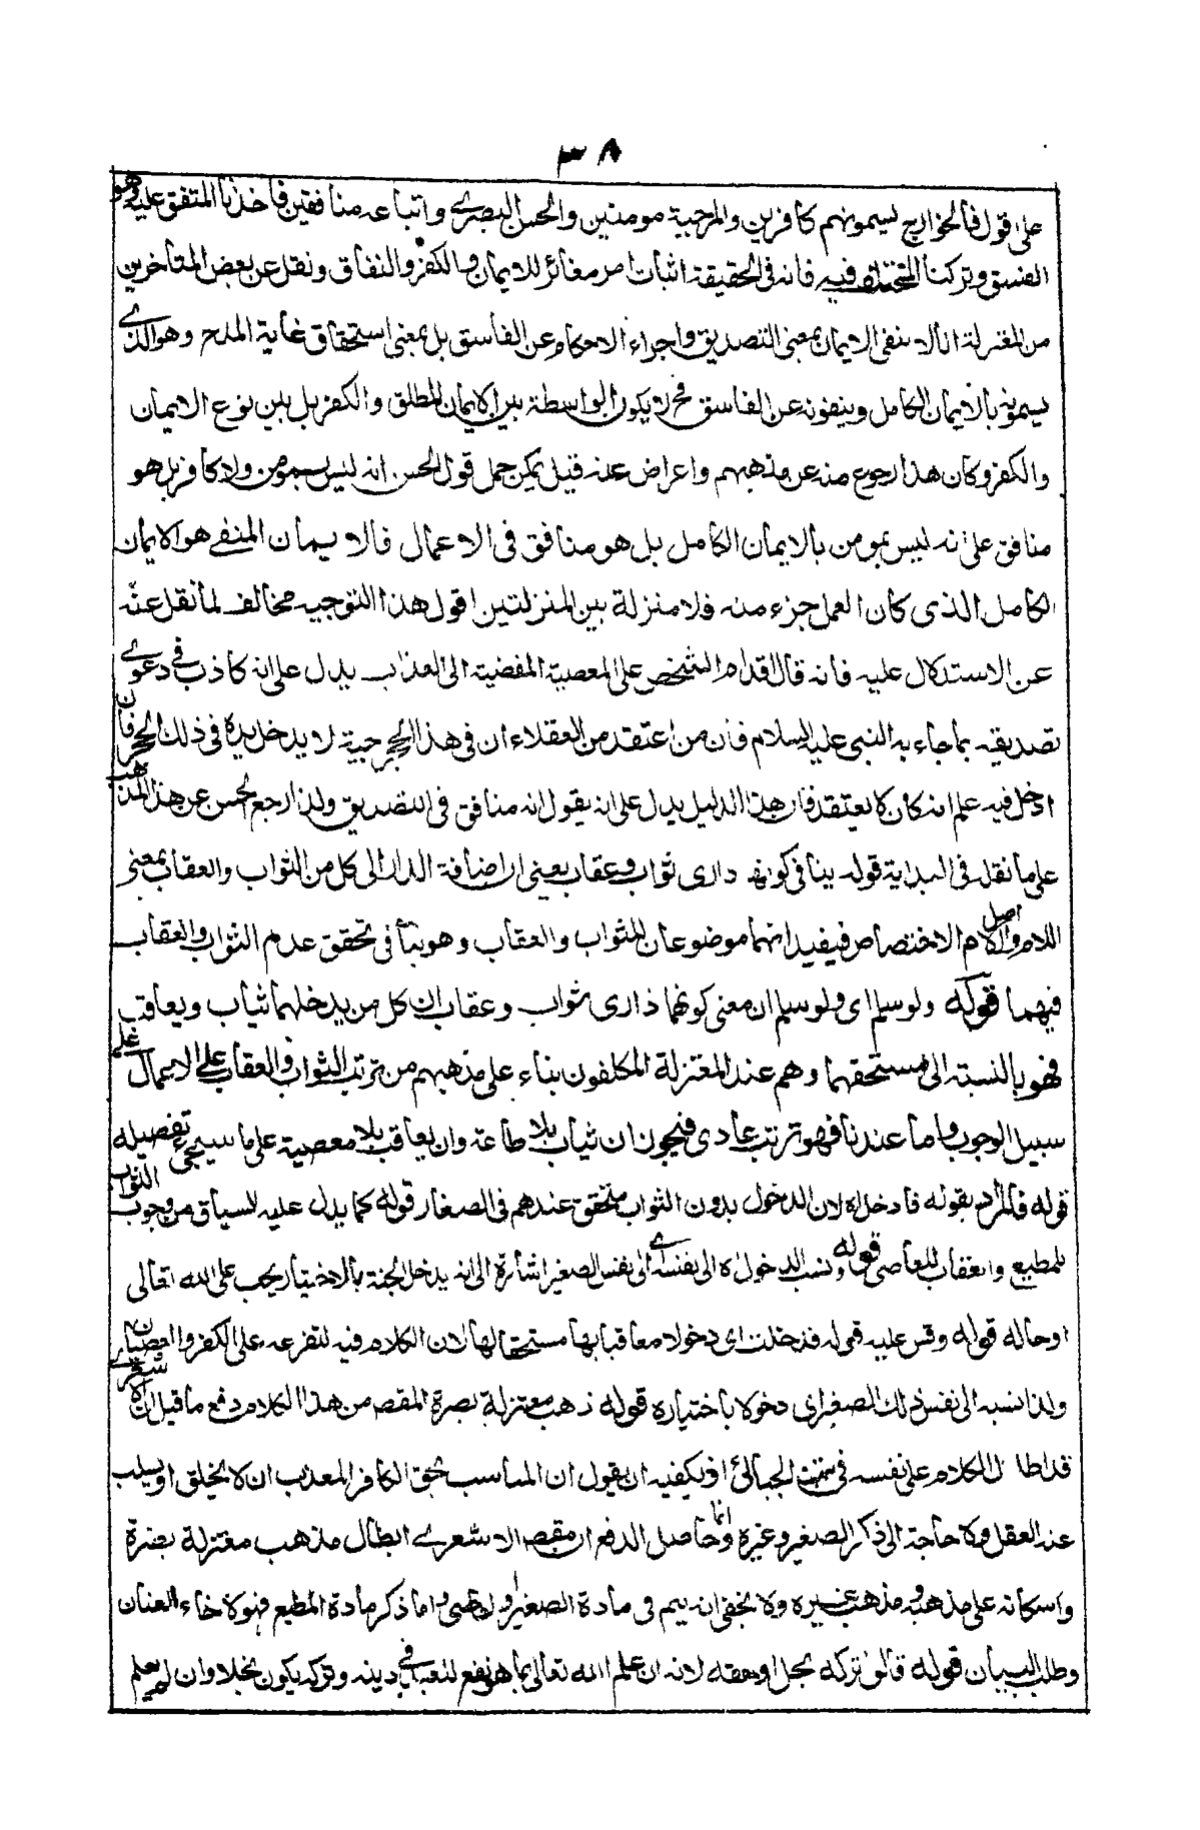 ٣٨
على قول فالخوارج يسمونهم كافرين والمرجية مومنين والحسن البصرى واتباعه منافقين فاخذنا المتفق عليه وهو
الفسق وتركنا المختلف فيه فانه فى الحقيقة اثبات امر مغائر للايمان والكفر والنفاق ونقل عن بعض المتأخرين
من المعتزلة انا لا ننفى الايمان بمعنى التصديق واجراء الاحكام عن الفاسق بل بمعنى استحقاق غاية المدح وهو الذى
يسمونه بالايمان الكامل وينفونه عن الفاسق فح لا يكون الواسطة بين الايمان المطلق والكفر بل بين نوع الايمان
والكفر وكان هذا رجوع منه عن مذهبهم واعراض عنه قيل يمكن حمل قول الحسن انه ليس بمومن ولا كافر بل هو
منافق على انه ليس بمومن بالايمان الكامل بل هو منافق فى الاعمال فالايمان المنفى هو الايمان
الكامل الذى كان العمل جزء منه فلا منزلة بين المنزلتين اقول هذا التوجيه مخالف لما نقل عنه
عن الاستدلال عليه فانه قال اقدام الشخص على المعصية المفضية الى العذاب يدل على انه كاذب فى دعوى
تصديقه بما جاء به النبى عليه السلام فان من اعتقد من العقلاء ان فى هذا الحجر حية لا يدخل يده فى ذلك الحجر فان
ادخل فيه علم انه كان لا يعتقد فان هذا الدليل يدل على انه يقول انه منافق فى التصديق ولذا رجع الحسن عن هذا المذهب
على ما نقل فى البداية قوله ينافى كونها دارى ثواب وعقاب يعنى ان اضافة الدار الى كل من الثواب والعقاب بمعنى
اللام واصل اللام الاختصاص فيفيد انهما موضوعان للثواب والعقاب وهو ينافى تحقق عدم الثواب والعقاب
فيهما قوله ولو سلم اى ولو سلم ان معنى كونهما دارى ثواب وعقاب ان كل من يدخلهما يثاب ويعاقب
فهو بالنسبة الى مستحقهما وهم عند المعتزلة المكلفون بناء على مذهبهم من ترتب الثواب والعقاب على الاعمال على
سبيل الوجوب واما عندنا فهو ترتب عادى فيجوز ان يثاب بلا طاعة وان يعاقب بلا معصية على ما سيجئ تفصيله
قوله فالمراد بقوله فادخل له لان الدخول بدون الثواب متحقق عندهم فى الصغار قوله كما يدل عليه السياق من وجوب الثواب
للمطيع والعقاب للعاصى قوله ونسب الدخول الى نفسه اى الى نفس الصغير اشارة الى انه يدخل الجنة بالاختيار يجب على الله تعالى
ادخاله قوله وقس عليه قوله فدخلت اى دخولا معاقبا بها مستحقا لها لان الكلام فيه لتفرعه على الكفر والعصيان
ولذا نسبه الى نفس ذلك الصغير اى دخولا باختياره قوله ذهب معتزلة بصرة المقصد من هذا الكلام دفع ما قيل ان الاشعرى
قد اطال الكلام على نفسه فى الجبائى اذ يكفيه ان يقول ان المناسب بحق الكافر المعذب ان لا يخلق او يسلب
عنه العقل ولا حاجة الى ذكر الصغير وغيره وانما حاصل الدفع ان مقصد الاشعرى ابطال مذهب معتزلة بصرة
واسكاته على مذهبه ومذهب غيره ولا يخفى انه يتم فى مادة الصغير واما ذكر مادة المطيع فهو لارخاء العنان
وطلب البيان قوله قالوا تركه بخل او سفه لانه ان علم الله تعالى بما هو نفع للعبد فى دينه وتركه يكون بخلا وان لم يعلم